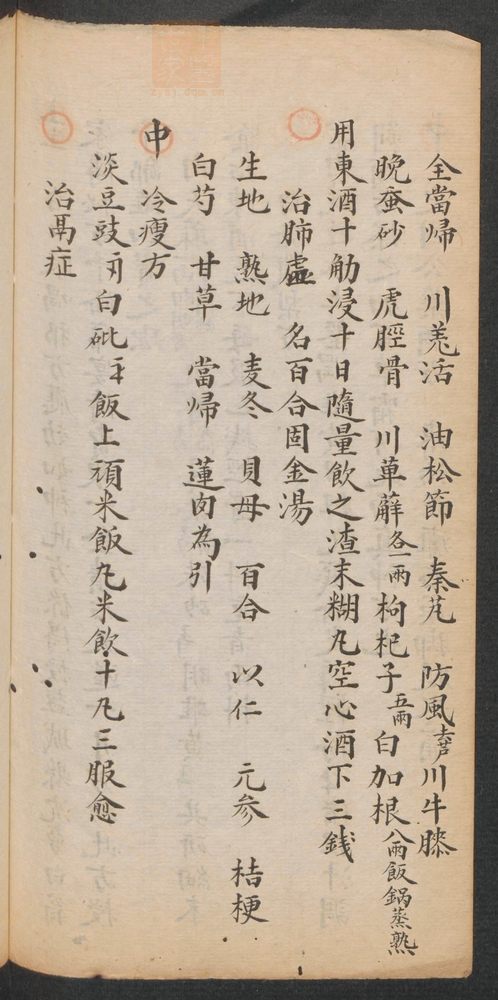 全當歸 川羗活 油松節 秦艽 防風去芦川牛膝
晚蚕砂 虎脛骨 川萆薢各一兩枸杞子五兩白加根八兩飯鍋蒸熟
用東酒十觔浸十日隨量飲之渣末糊丸空心酒下三錢
治肺虛 名百合固金湯
生地 熟地 麦冬 貝母 百合 以仁 元参 桔梗
白芍 甘草 當歸 蓮肉為引
中 冷瘦方
淡豆豉 白砒 飯上頓米飯丸米飲十丸三服愈
治鬲症